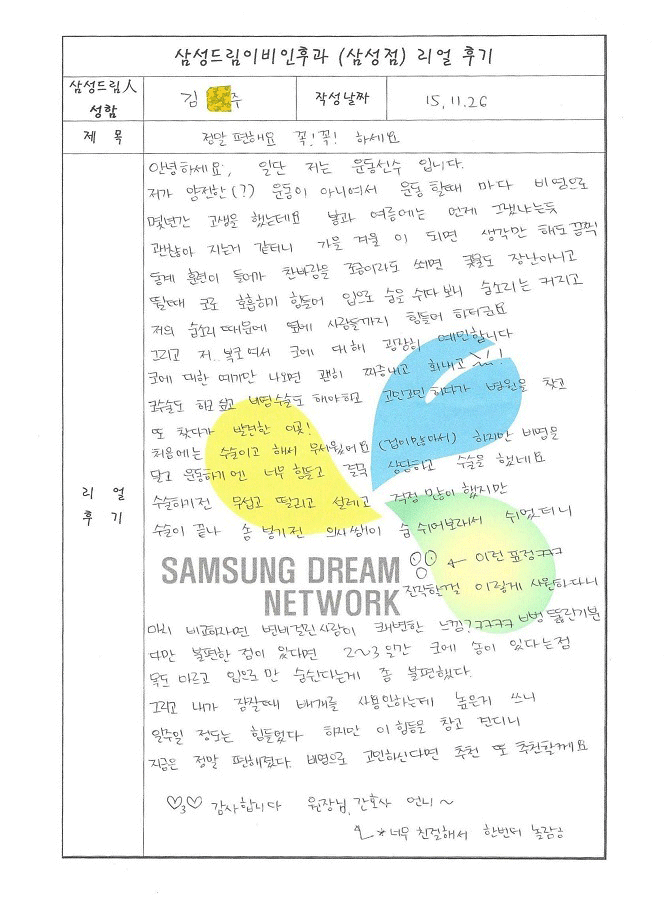 삼성드림이비인후과 (삼성점) 리얼 후기
삼성드림人 성함
김 주
작성날짜
15.11.26
제 목
정말 편해요 꼭! 꼭! 하세요
리 얼 후 기
안녕하세요, 일단 저는 운동선수 입니다.
저가 얌전한(?) 운동이 아니여서 운동 할때 마다 비염으로
몇년간 고생을 했는데요 날과 여름에는 언제 그랬냐는듯
괜찮아 지는거 같더니 가을 겨울 이 되면 생각만 해도 끔찍
동계 훈련이 들어가 찬바람을 조금이라도 쐬면 콧물도 장난아니고
뛸때 코로 호흡하기 힘들어 입으로 숨을 쉬다 보니 숨소리는 커지고
저의 숨소리 때문에 옆에 사람들까지 힘들어 하더군요
그리고 저. 코에 대해 굉장히 예민합니다
코에 대한 얘기만 나오면 괜히 짜증내고 화내고 !!
코수술도 하고 싶고 비염수술도 해야하고 고민고민 하다가 병원을 찾고
또 찾다가 발견한 이곳!
처음에는 수술이고 해서 무서웠어요 (겁이많아서) 하지만 비염을
달고 운동하기엔 너무 힘들고 결국 상담하고 수술을 했네요
수술하기전 무섭고 떨리고 설레고 걱정 많이 했지만
수술이 끝나 솜 넣기전 의사쌤이 숨 쉬어보라해서 쉬었더니
← 이런 표정ㅋㅋㅋ
SAMSUNG DREAM
NETWORK
진작할껄 이렇게 시원하다니
마치 비교하자면 변비걸린사람이 쾌변한 느낌?ㅋㅋㅋㅋ 뻥 뚫린기분
다만 불편한 점이 있다면 2~3일간 코에 솜이 있다는점
목도 마르고 입으로 만 숨쉰다는게 좀 불편했다.
그리고 내가 잠잘때 베개를 사용안하는데 높은거 쓰니
일주일 정도는 힘들었다 하지만 이 힘듬을 참고 견디니
지금은 정말 편해졌다. 비염으로 고민하신다면 추천 또 추천할께요
♡3♡ 감사합니다 원장님, 간호사 언니 ~
*너무 친절해서 한번더 놀람